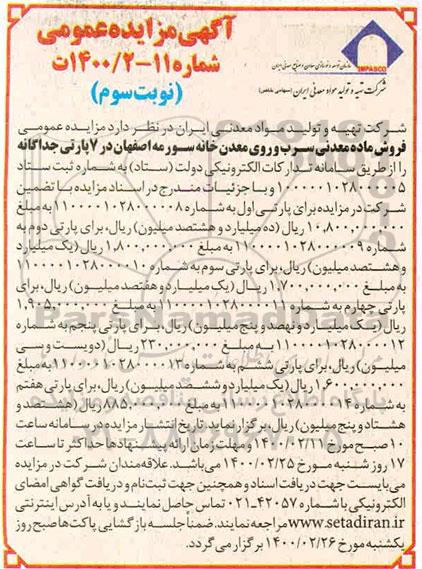 آگهی مزایده عمومی
شماره ۱۱-۱۴۰۰/۲ت
(نوبت سوم)
IMPASCO
سازمان توسعه و نوسازی معادن و صنایع معدنی ایران
شرکت تهیه و تولید مواد معدنی ایران (سهامی خاص)
شرکت تهیه و تولید مواد معدنی ایران در نظر دارد مزایده عمومی
فروش ماده معدنی سرب و روی معدن خانه سورمه اصفهان در ۷ پارتی جداگانه
را از طریق سامانه تدارکات الکترونیکی دولت (ستاد) به شماره ثبت ستاد
و با جزئیات مندرج در اسناد مزایده با تضمین
شرکت در مزایده برای پارتی اول به شماره
۱۰,۸۰۰,۰۰۰,۰۰۰ ریال (ده میلیارد و هشتصد میلیون) ریال، برای پارتی دوم به
شماره به مبلغ ۱,۸۰۰,۰۰۰,۰۰۰ ریال (یک میلیارد
و هشتصد میلیون) ریال، برای پارتی سوم به شماره
به مبلغ ۱,۷۰۰,۰۰۰,۰۰۰ ریال (یک میلیارد و هفتصد میلیون) ریال، برای
پارتی چهارم به شماره به مبلغ
ریال (یک میلیارد و نهصد و پنج میلیون) ریال، برای پارتی پنجم به شماره
به مبلغ ۲۳۰,۰۰۰,۰۰۰ ریال (دویست و سی
میلیون) ریال، برای پارتی ششم به شماره به مبلغ
۱,۶۰۰,۰۰۰,۰۰۰ ریال (یک میلیارد و ششصد میلیون) ریال، برای پارتی هفتم
به شماره به مبلغ ۸۸۵,۰۰۰,۰۰۰ ریال (هشتصد و
هشتاد و پنج میلیون) ریال، برگزار نماید تاریخ انتشار مزایده در سامانه ساعت
۱۰ صبح مورخ ۱۴۰۰/۰۲/۱۱ و مهلت زمان ارائه پیشنهادها حداکثر تا ساعت
۱۷ روز شنبه مورخ ۱۴۰۰/۰۲/۲۵ می‌باشد. علاقه‌مندان شرکت در مزایده
می‌بایست جهت دریافت اسناد و همچنین جهت ثبت‌نام و دریافت گواهی امضای
الکترونیکی با شماره ۴۲۰۵۷-۰۲۱ تماس حاصل نمایند و یا به آدرس اینترنتی
www.setadiran.ir مراجعه نمایند. ضمناً جلسه بازگشایی پاکت‌ها صبح روز
یکشنبه مورخ ۱۴۰۰/۰۲/۲۶ برگزار می‌گردد.